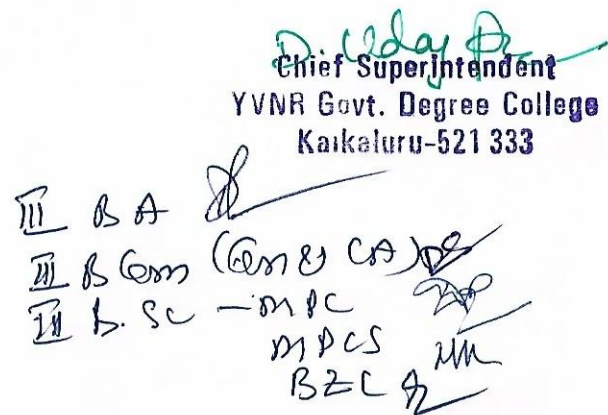 D. Uday
Chief Superintendent
YVNR Govt. Degree College
Kaikaluru-521 333
III B A
III B Com (Gen & CA)
III B. Sc - MPC
MPCS
BZC